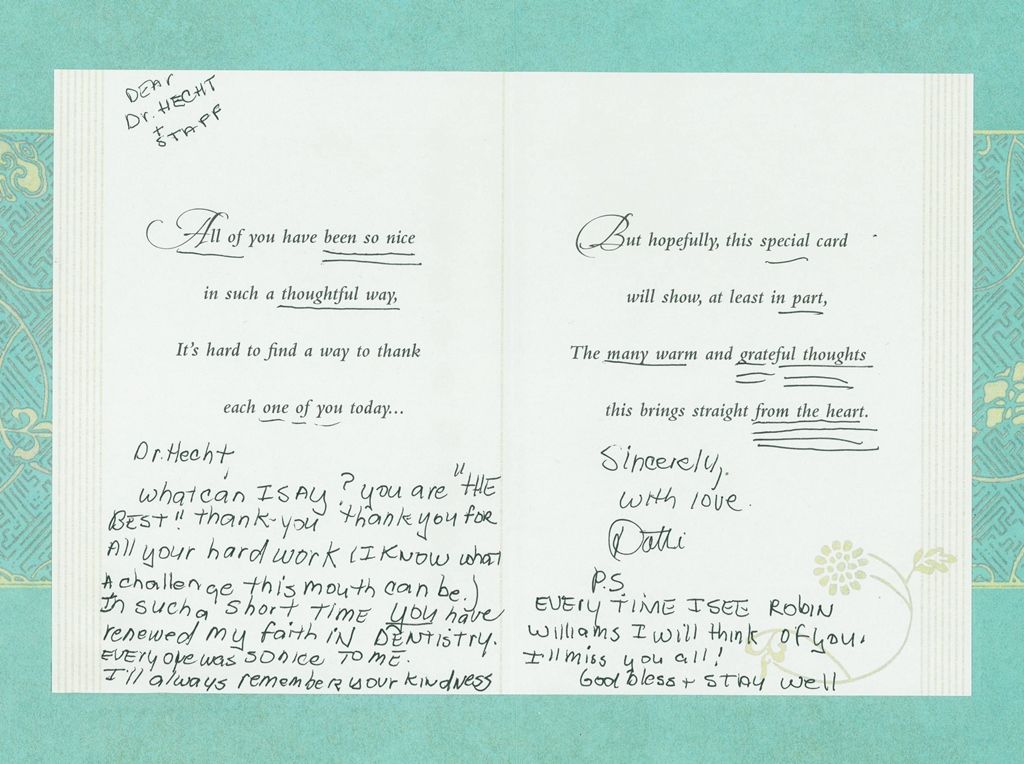 DEAR
Dr. HECHT
+
STAFF
All of you have been so nice
in such a thoughtful way,
It's hard to find a way to thank
each one of you today...
Dr. Hecht
what can I SAY? you are "THE
BEST". thank-you thank you for
All your hard work (I KNOW what
A challenge this mouth can be.)
In such a short TIME you have
renewed my faith iN DENTISTRY.
EVERY one was SO NICE TO ME.
I'll always remember your KINDNESS
But hopefully, this special card
will show, at least in part,
The many warm and grateful thoughts
this brings straight from the heart.
Sincerely,
with love.
P.S.
EVERY TIME I SEE ROBIN
Williams I will think of you.
I'll miss you all!
God bless + STAY well